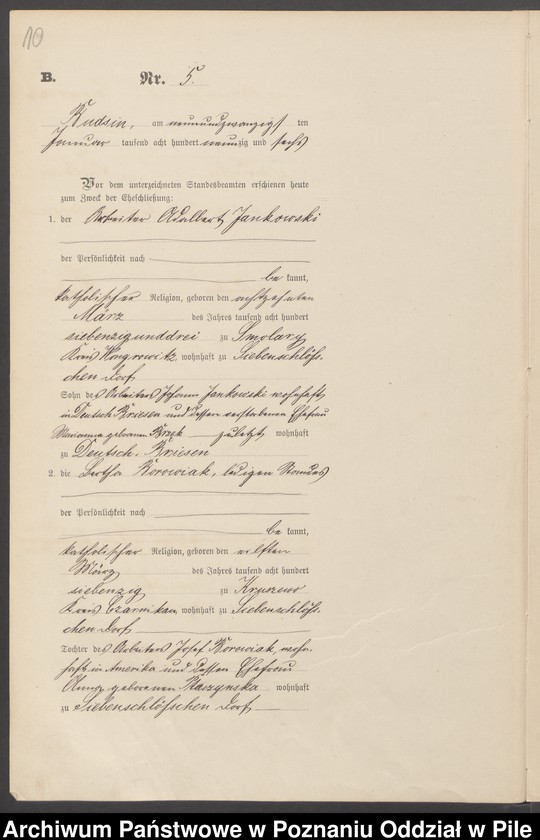 10
B. Nr. 5.
Rudsin, am neunundzwanzigs ten
Januar tausend acht hundert neunzig und sechs
Vor dem unterzeichneten Standesbeamten erschienen heute
zum Zweck der Eheschließung:
1. der Arbeiter Adalbert Jankowski
der Persönlichkeit nach
be kannt,
katholischer Religion, geboren den achtzehnten
März des Jahres tausend acht hundert
siebenzigunddrei zu Smolary
Kreis Wongrowitz, wohnhaft zu Siebenschlöß-
chen Dorf
Sohn des Arbeiters Johann Jankowski wohnhaft
in Deutsch Briesen und dessen verstorbenen Ehefrau
Marianna geborenen zuletzt wohnhaft
zu Deutsch-Briesen
2. die Bertha Borowiak, ledigen Standes
der Persönlichkeit nach
be kannt,
katholischer Religion, geboren den elften
März des Jahres tausend acht hundert
siebenzig zu Kruszewo
Kreis Czarnikau, wohnhaft zu Siebenschlöß-
chen Dorf
Tochter des Arbeiters Josef Borowiak, wohn-
haft in Amerika und dessen Ehefrau
geborenen wohnhaft
zu Siebenschlößchen Dorf
Archiwum Państwowe w Poznaniu Oddział w Pile